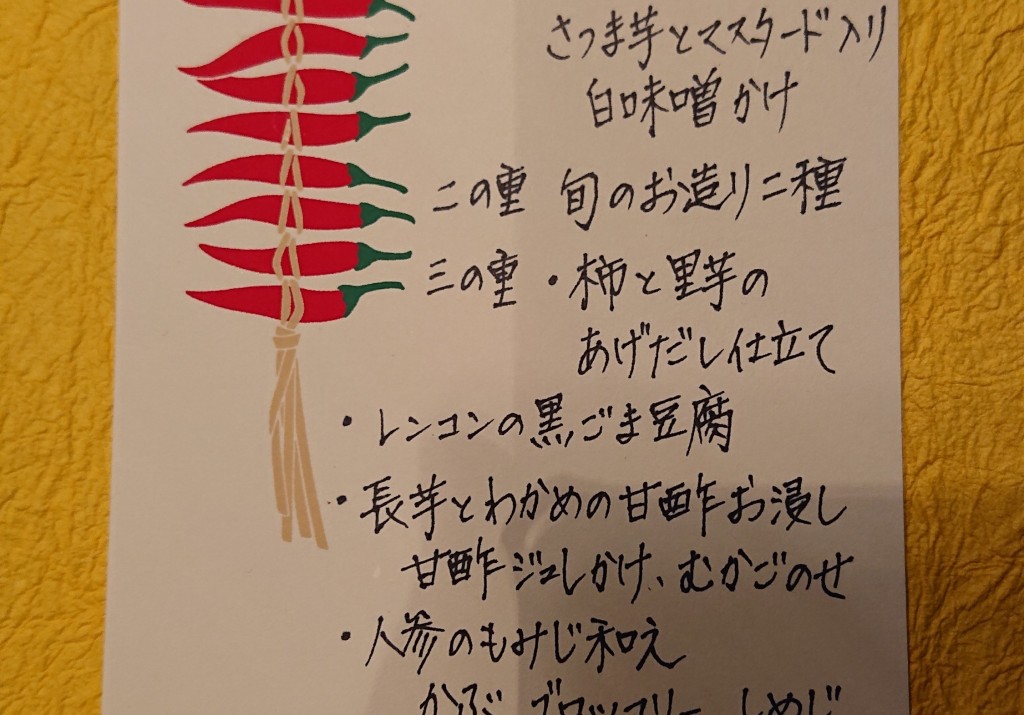 さつま芋とマスタード入り
白味噌かけ
二の重 旬のお造り二種
三の重 ・柿と里芋の
あげだし仕立て
・レンコンの黒ごま豆腐
・長芋とわかめの甘酢お浸し
甘酢ジュレかけ、むかごのせ
・人参のもみじ和え
かぶ、ブロッコリー、しめじ